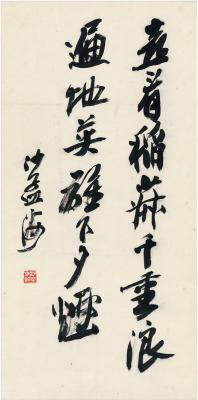 喜看稻菽千重浪
遍地英雄下夕烟
沙孟海